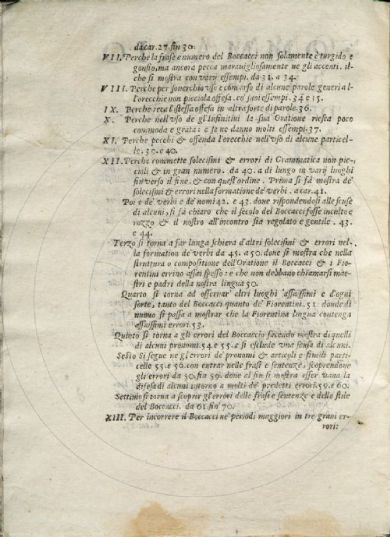 da car. 27. fin 30.
VII. Perche la frase e numero del Boccacci non solamente è turgido e
gonfio, ma ancora pecca marauigliosamente ne gli accenti. il-
che si mostra con varij essempi. da 31. a 34.
VIII. Perche per souerchio vso e concorso di alcune parole genera al-
l'orecchie non picciola offesa. co' suoi essempi. 34 e 35.
IX. Perche reca l'istessa offesa in altra sorte di parole. 36.
X. Perche nell'vso de gl'infiniti la sua Oratione resta poco
commoda e grata: e se ne danno molti essempi. 37.
XI. Perche pecchi & offenda l'orecchie nell'vso di alcune particel-
le. 39. e 40.
XII. Perche commette solecismi & errori di Grammatica non pic-
cioli & in gran numero. da 40. a di lungo in varij luoghi
fin verso il fine. & con quest'ordine. Prima si fà mostra de'
solecismi & errori nella formatione de' verbi. a car. 41.
Poi e de' verbi e de' nomi 42. e 43. doue rispondendosi alle scuse
di alcuni, si fà chiaro che il secolo del Boccacci fosse incolto e
rozzo & il nostro all'incontro sia regolato e gentile. 43.
e 44.
Terzo si torna a far lunga schiera d'altri solecismi & errori nel-
la formatione de' verbi da 45. a 50. doue si mostra che nella
struttura o compositione dell'Oratione il Boccacci & i Fio-
rentini errino assai spesso: e che non debbano chiamarsi mae-
stri e padri della nostra lingua 50.
Quarto si torna ad osseruar altri luoghi assaissimi e d'ogni
sorte, tanto del Boccacci quanto de' Fiorentini. 51. donde di
nuouo si passa a mostrar che la Fiorentina lingua contenga
assaissimi errori. 53.
Quinto si torna a gli errori del Boccacci: facendo mostra di quelli
di alcuni pronomi. 54 e 55. e si esclude vna scusa di alcuni.
Sesto Si segue ne gli errori de' pronomi & articoli e simili parti-
celle 55. e 56. con entrar nelle frasi e sentenze, scoprendone
gli errori da 56. fin 59. doue al fin si mostra esser vana la
difesa di alcuni intorno a molti de' predetti errori. 59. e 60.
Settimo si torna a scoprir gli errori delle frasi e sentenze e dello stile
del Boccacci. da 61 fin' 70.
XIII. Per incorrere il Boccacci ne' periodi maggiori in tre grani er-
rori: